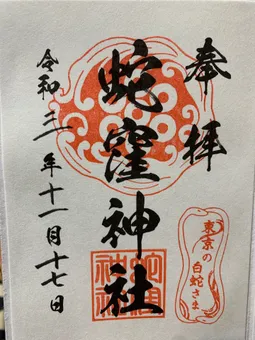 奉拝
蛇窪神社
令和三年十一月十七日
東京の
白蛇さま